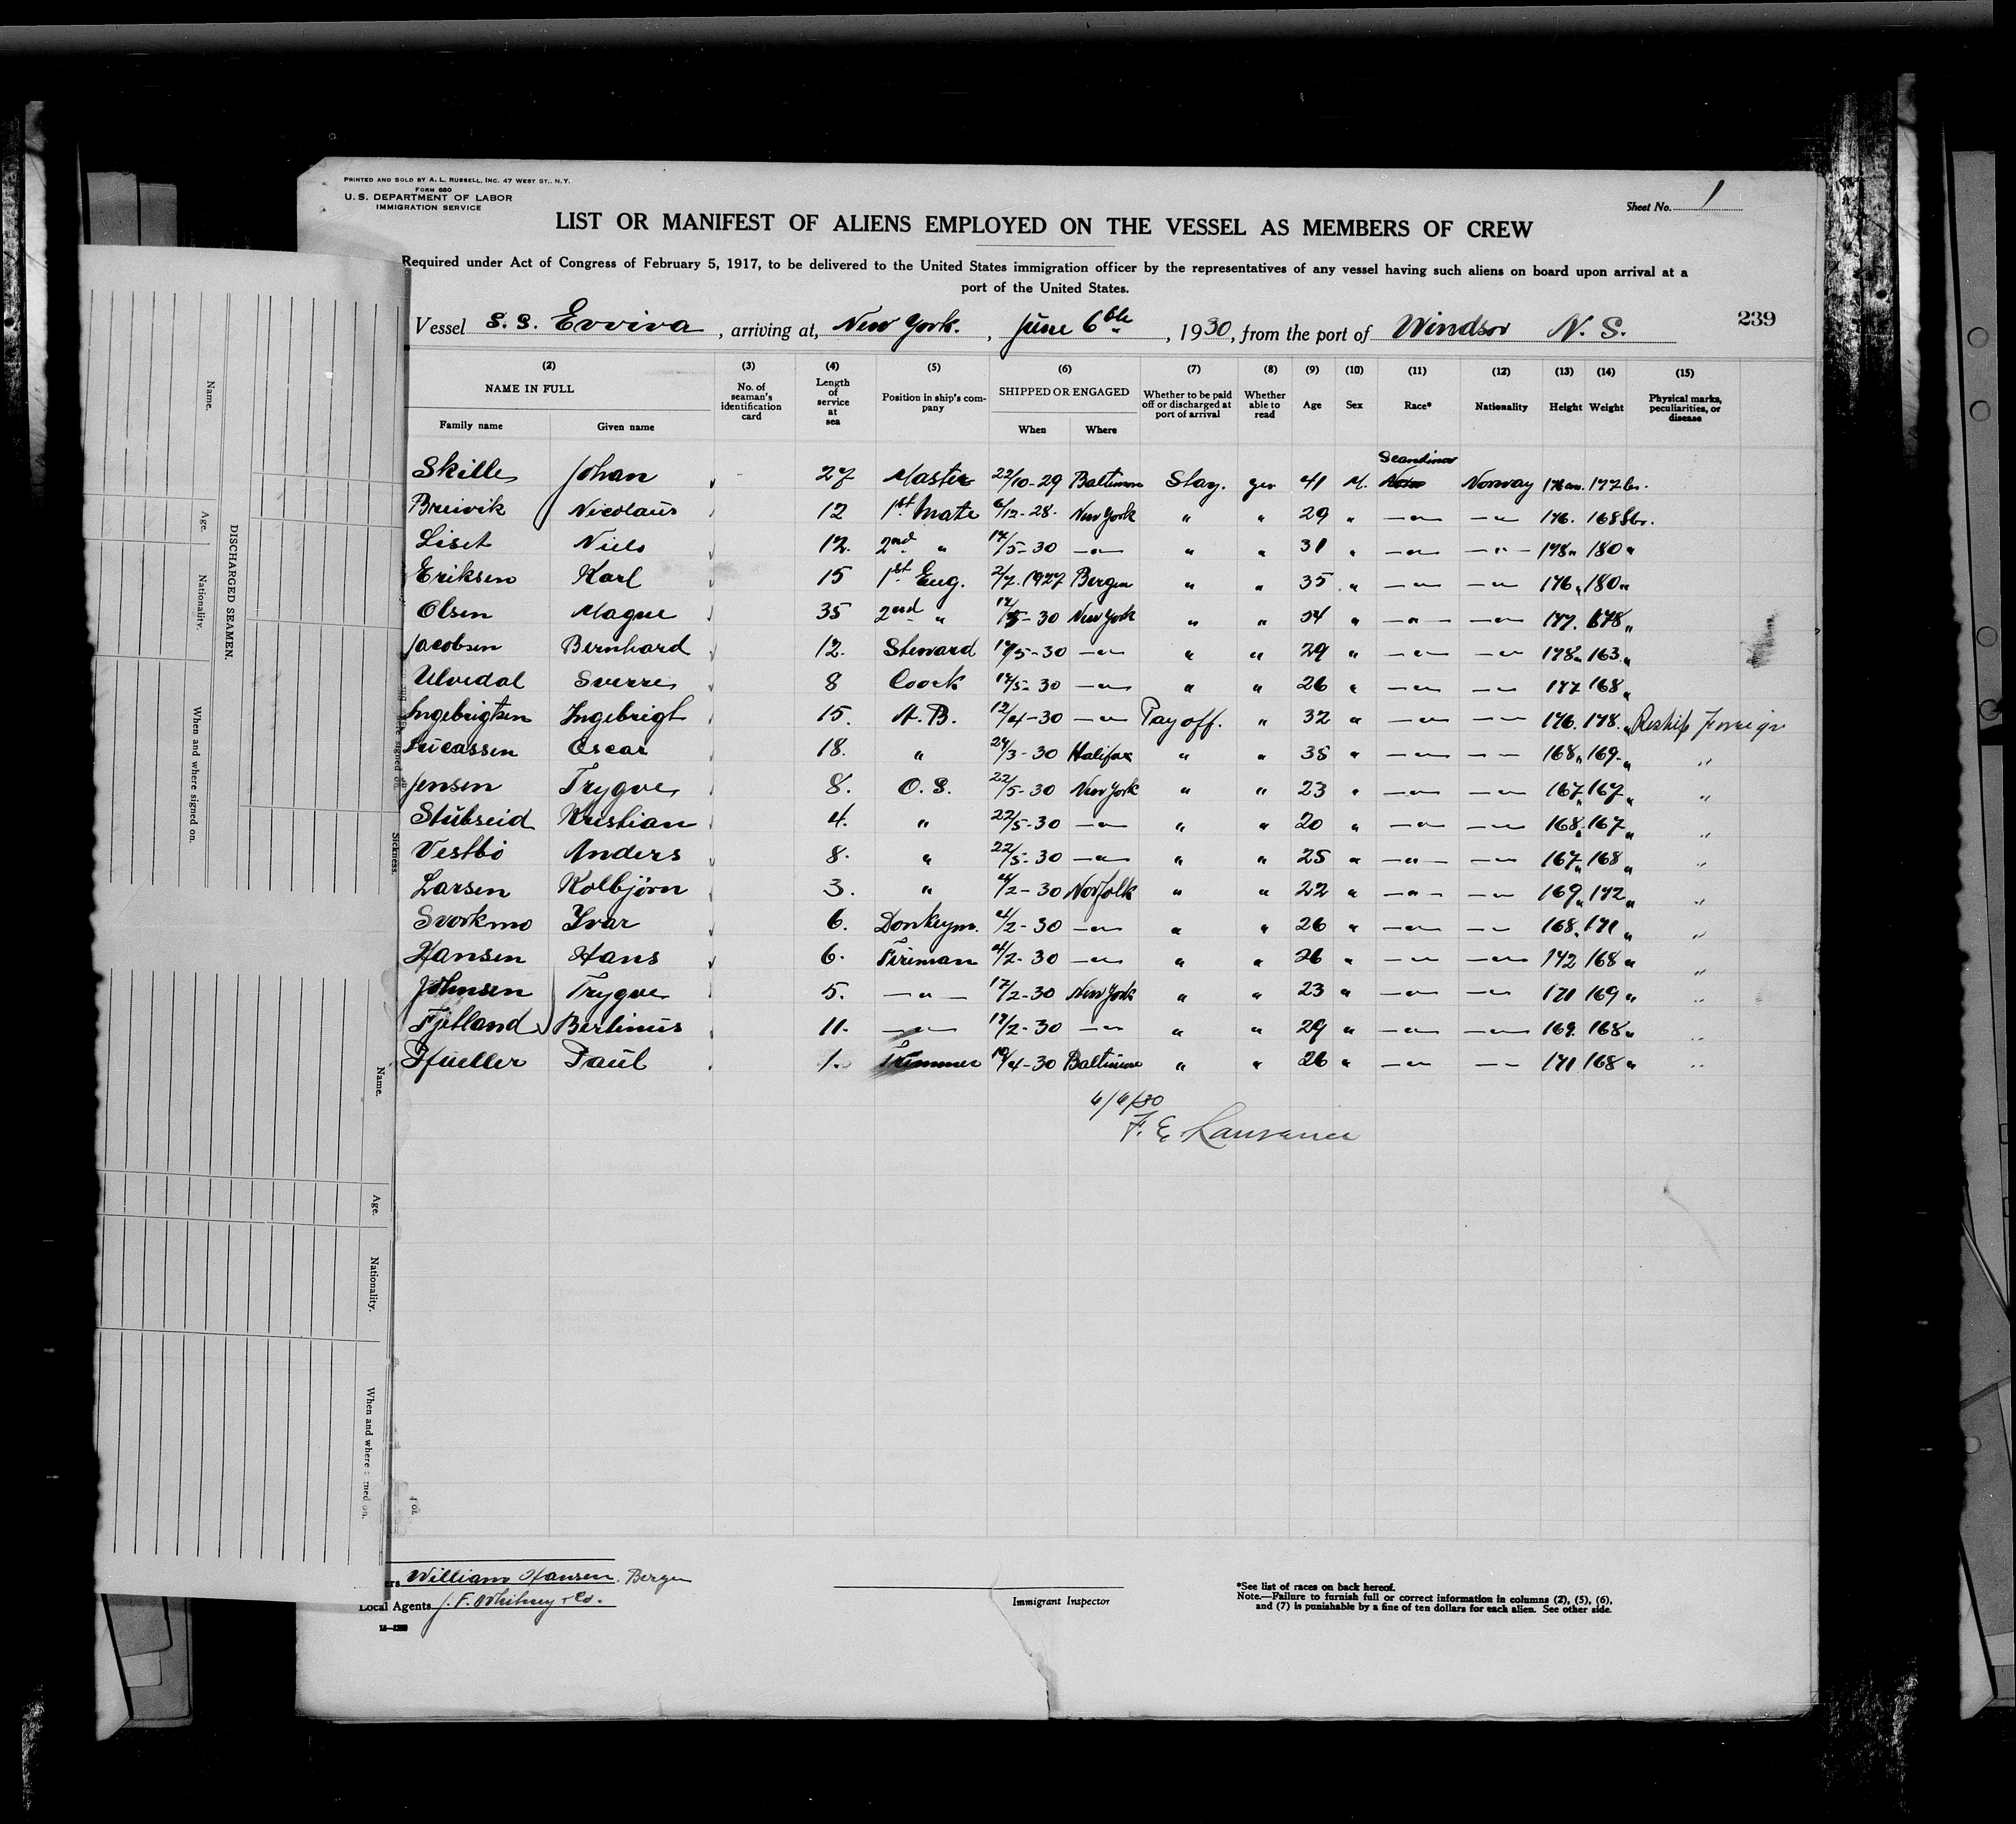 PRINTED AND SOLD BY A. L. RUSSELL, INC. 47 WEST ST., N.Y.
FORM 680
U. S. DEPARTMENT OF LABOR
IMMIGRATION SERVICE
Sheet No. 1
LIST OR MANIFEST OF ALIENS EMPLOYED ON THE VESSEL AS MEMBERS OF CREW
Required under Act of Congress of February 5, 1917, to be delivered to the United States immigration officer by the representatives of any vessel having such aliens on board upon arrival at a
port of the United States.
Vessel S. S. Evviva, arriving at, New York., June 6th, 1930, from the port of Windsor N. S.
239
(2) (3) (4) (5) (6) (7) (8) (9) (10) (11) (12) (13) (14) (15)
NAME IN FULL
Family name Given name
No. of seaman's identification card
Length of service at sea
Position in ship's company
SHIPPED OR ENGAGED
When Where
Whether to be paid off or discharged at port of arrival
Whether able to read
Age
Sex
Race*
Nationality
Height
Weight
Physical marks, peculiarities, or disease
Skille Johan 27 Master 22/10-29 Baltimore Stay. yes 41 M. Scandinav Norway 176 cm. 177 lbs.
Breivik Nicolaus 12 1st Mate 6/12-28. New York " " 29 " —"— —"— 176. 168 lbs.
Liset Niels 12. 2nd " 17/5-30 —"— " " 31 " —"— —"— 178 " 180 "
Eriksen Karl 15 1st Eng. 2/7.1927 Bergen " " 35 " —"— —"— 176 " 180 "
Olsen Magne 35 2nd " 17/5-30 New York " " 54 " —"— —"— 177. 178 "
Jacobsen Bernhard 12. Steward 17/5-30 —"— " " 29 " —"— —"— 178 " 163 "
Ulvedal Sverre 8 Coock 17/5-30 —"— " " 26 " —"— —"— 177 168 "
Ingebrigtsen Ingebrigt 15. A. B. 12/4-30 —"— Pay off. " 32 " —"— —"— 176. 178. " Reship Foreign
Oscar 18. " 24/3-30 Halifax " " 35 " —"— —"— 168 " 169. " "
Jensen Trygve 8. O. S. 22/5-30 New York " " 23 " —"— —"— 167 " 167 " "
Stubseid Kristian 4. " 22/5-30 —"— " " 20 " —"— —"— 168 " 167 " "
Vestbö Anders 8. " 22/5-30 —"— " " 25 " —"— —"— 167 " 168 " "
Larsen Kolbjørn 3. " 4/2-30 Norfolk " " 22 " —"— —"— 169 " 172 " "
Svorkmo Ivar 6. Donkeym. 4/2-30 —"— " " 26 " —"— —"— 168 " 171 " "
Hansen Hans 6. Fireman 4/2-30 —"— " " 26 " —"— —"— 172 168 " "
Johnsen Trygve 5. —"— 17/2-30 New York " " 23 " —"— —"— 171 169 " "
Fjetland Bertinius 11. —"— 17/2-30 —"— " " 29 " —"— —"— 169. 168 " "
Pfueller Paul 1. Trimmer 10/4-30 Baltimore " " 26 " —"— —"— 171 168 " "
6/6/30
F. E. Lawrence
William Hansen, Bergen
Local Agents J. F. Whitney & Co.
Immigrant Inspector
*See list of races on back hereof.
Note.—Failure to furnish full or correct information in columns (2), (5), (6),
and (7) is punishable by a fine of ten dollars for each alien. See other side.
DISCHARGED SEAMEN.
Name.
Age.
Nationality.
When and where signed on.
Sickness.
Name.
Age.
Nationality.